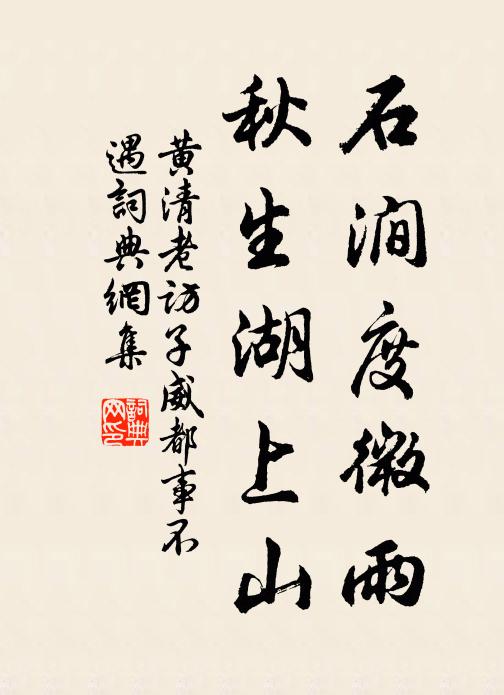 石澗度微雨
秋生湖上山
黃清老訪子威都事不
遇詞典網集
詞典
网印